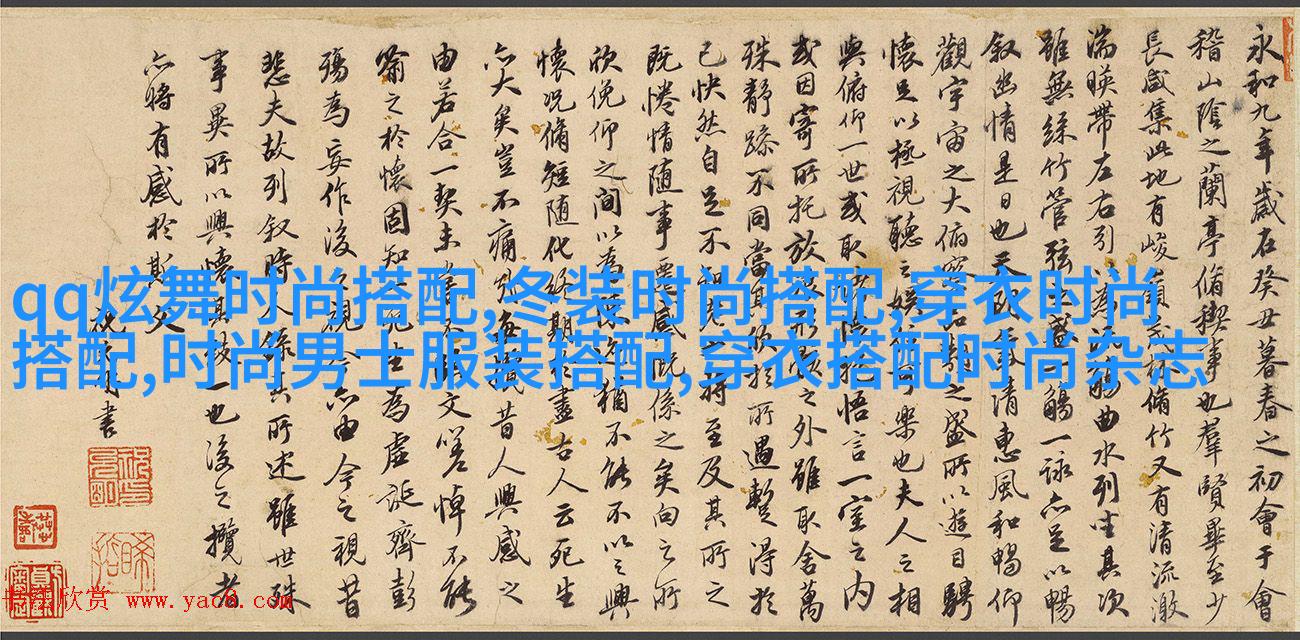 永和九年歲在癸丑暮春之初會于會
稽山陰之蘭亭脩稧事也羣賢畢至少
長咸集此地有峻領茂林脩竹又有清流激
湍暎帶左右引以為流觴曲水列坐其次
雖無絲竹管弦之盛觴一詠亦足以暢
叙幽情是日也天朗氣清惠風和暢仰
觀宇宙之大俯察品類之盛所以遊目騁
懷足以極視聽之娛信可樂也夫人之相
與俯仰一世或取諸懷抱悟言一室之內
或因寄所托放浪形骸之外雖取舍萬
殊靜躁不同當其欣於所遇暫得於
己快然自足不知老之將至及其所之
既惓情隨事遷感慨係之矣向之所
欣俛仰之間以為陳迹猶不能不以之興
懷況脩短隨化終期於盡古人云死生
亦大矣豈不痛哉每攬昔人興感之
由若合一契未嘗不臨文嗟悼不能
喻之於懷固知一死生為虛誕齊彭
殤為妄作後之視今亦由今之視昔
悲夫故列叙時人錄其所述雖世殊
事異所以興懷其致一也後之攬者
亦將有感於斯文
書
qq炫舞时尚搭配,冬装时尚搭配,穿衣时尚
搭配,时尚男士服装搭配,穿衣搭配时尚杂志
书法欣赏 www.yac8.com